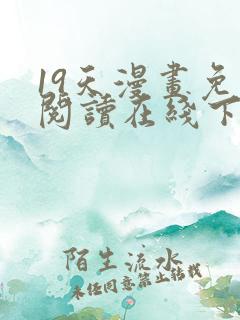 19天漫畫免
閱讀在线下
陌生流水
未任同意禁止转载